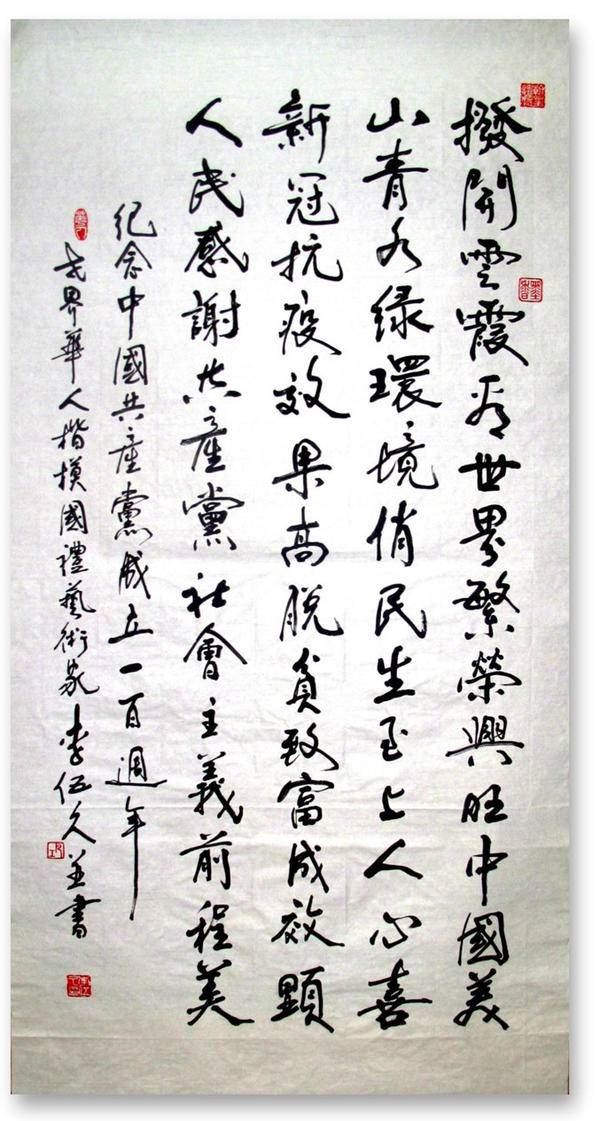 撥開雲霞看世界繁榮興旺中國美
山青水绿環境俏民生至上人心喜
新冠抗疫效果高脱貧致富成效顯
人民感謝共產黨社會主義前程美
紀念中國共產黨成立一百週年
世界華人楷模國禮藝術家李伍久並書